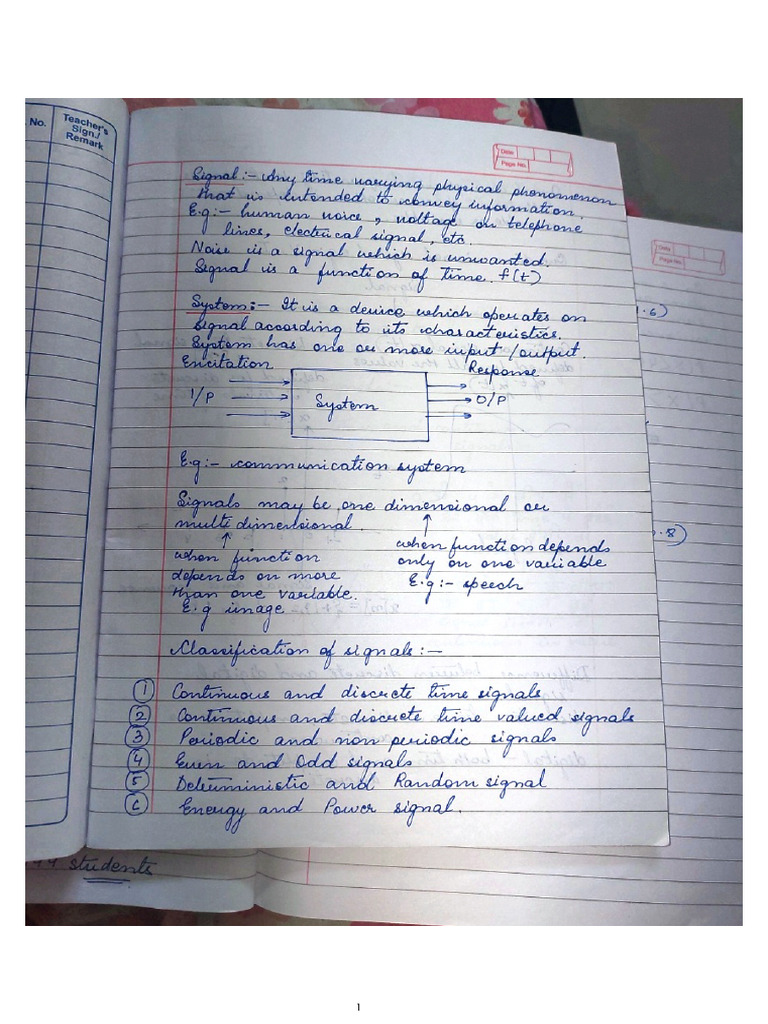 No.
Teacher's
Sign./
Remark
Date
Page No.
Signal:- Any time varying physical phenomenon
that is intended to convey information.
E.g:- human voice, voltage on telephone
lines, electrical signal, etc.
Noise is a signal which is unwanted.
Signal is a function of time. f(t)
System:- It is a device which operates on
signal according to its characteristics.
System has one or more input/output.
Excitation
Response
I/P
System
O/P
E.g:- communication system
Signals may be one dimensional or
multidimensional.
when function
depends on more
than one variable.
E.g image
when function depends
only on one variable
E.g:- speech
Classification of signals:-
1 Continuous and discrete time signals
2 Continuous and discrete time valued signals
3 Periodic and non periodic signals
4 Even and Odd signals
5 Deterministic and Random signal
6 Energy and Power signal.
students
Date
Page No.
.6)
.8)
1